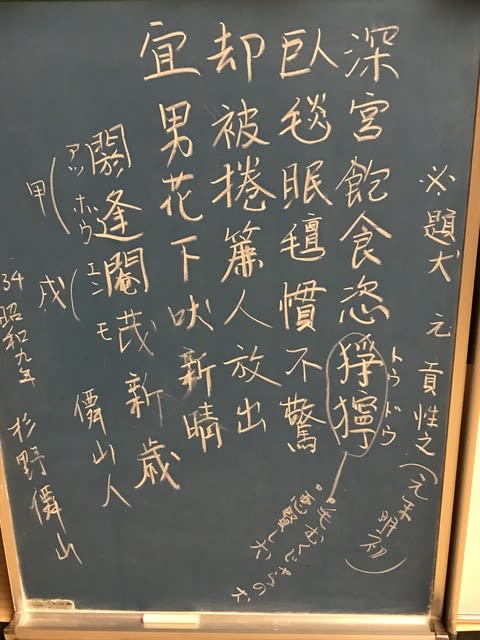 ※題犬 元 貢性之(元末明初)
深宮飽食恣猙獰
トウドウ
毛むくじゃらの犬
臥毯眠氈慣不驚
却被捲簾人放出
宜男花下吠新晴
閼逢閹茂新歳
アツ ホウ エン モ
僊山人
甲 戌
34 昭和九年 杉野僊山